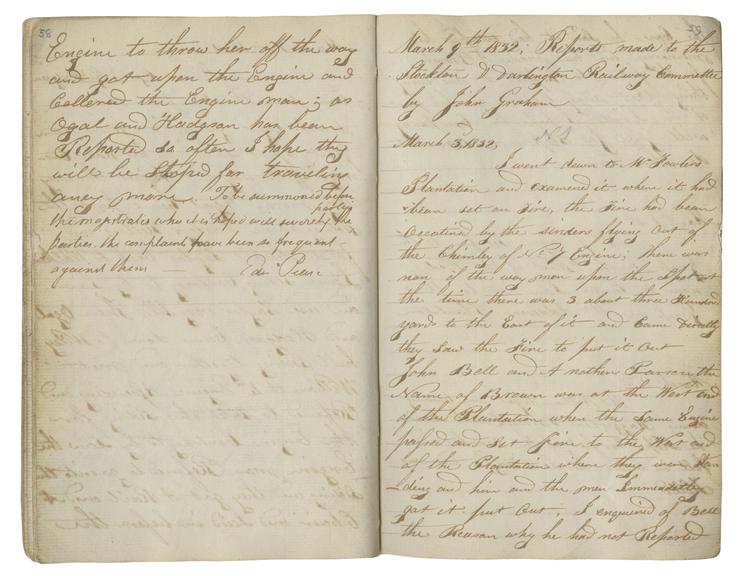 58
Engine to throw her off the way
and got upon the Engine and
Collered the Engine man; as
Ogal and Hodgson has been
Reported so often I hope they
will be stoped for traveling
aney more. To be summoned before
the magistrates who it is hoped will severely the
Parties. the complaints have been so frequent
against them
59
March 9th 1832; Reports made to the
Stockton & Darlington Railway Committee
by John Graham
March 5, 1832,
I went down to Mr Fowlers
Plantation and examened it where it had
been set on Fire, the Fire had been
Ocecatined by the sinders flying out of
the Chimley of No 7 Engine; there was
non of the way men upon the spot at
the time there was 3 about three Hundred
yards to the East of it and Came Directly
they Saw the Fire to put it Out
John Bell and A nother Parson the
Name of Brown was at the West end
of the Plantation when the Same Engine
passed and set fire to the West end
of the Plantation where they were stan
-ding and him and the men Immeaditley
got it put Out. I enquired of Bell
the Reason why he had not Reported